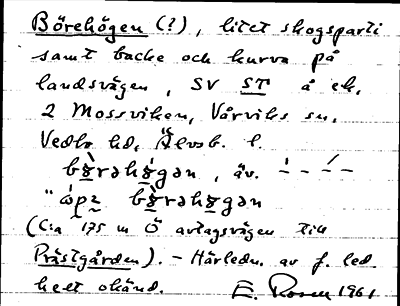 Börehögen (?), litet skogsparti
samt backe och kurva på
landsvägen, SV ST å ek.
2 Mossviken, Vårviks sn,
Vedbo hd, Älvsb. l.
(C:a 175 m Ö avtagsvägen till
Prästgården). - Härledn. av f. led
helt okänd. E. Rosen 1961